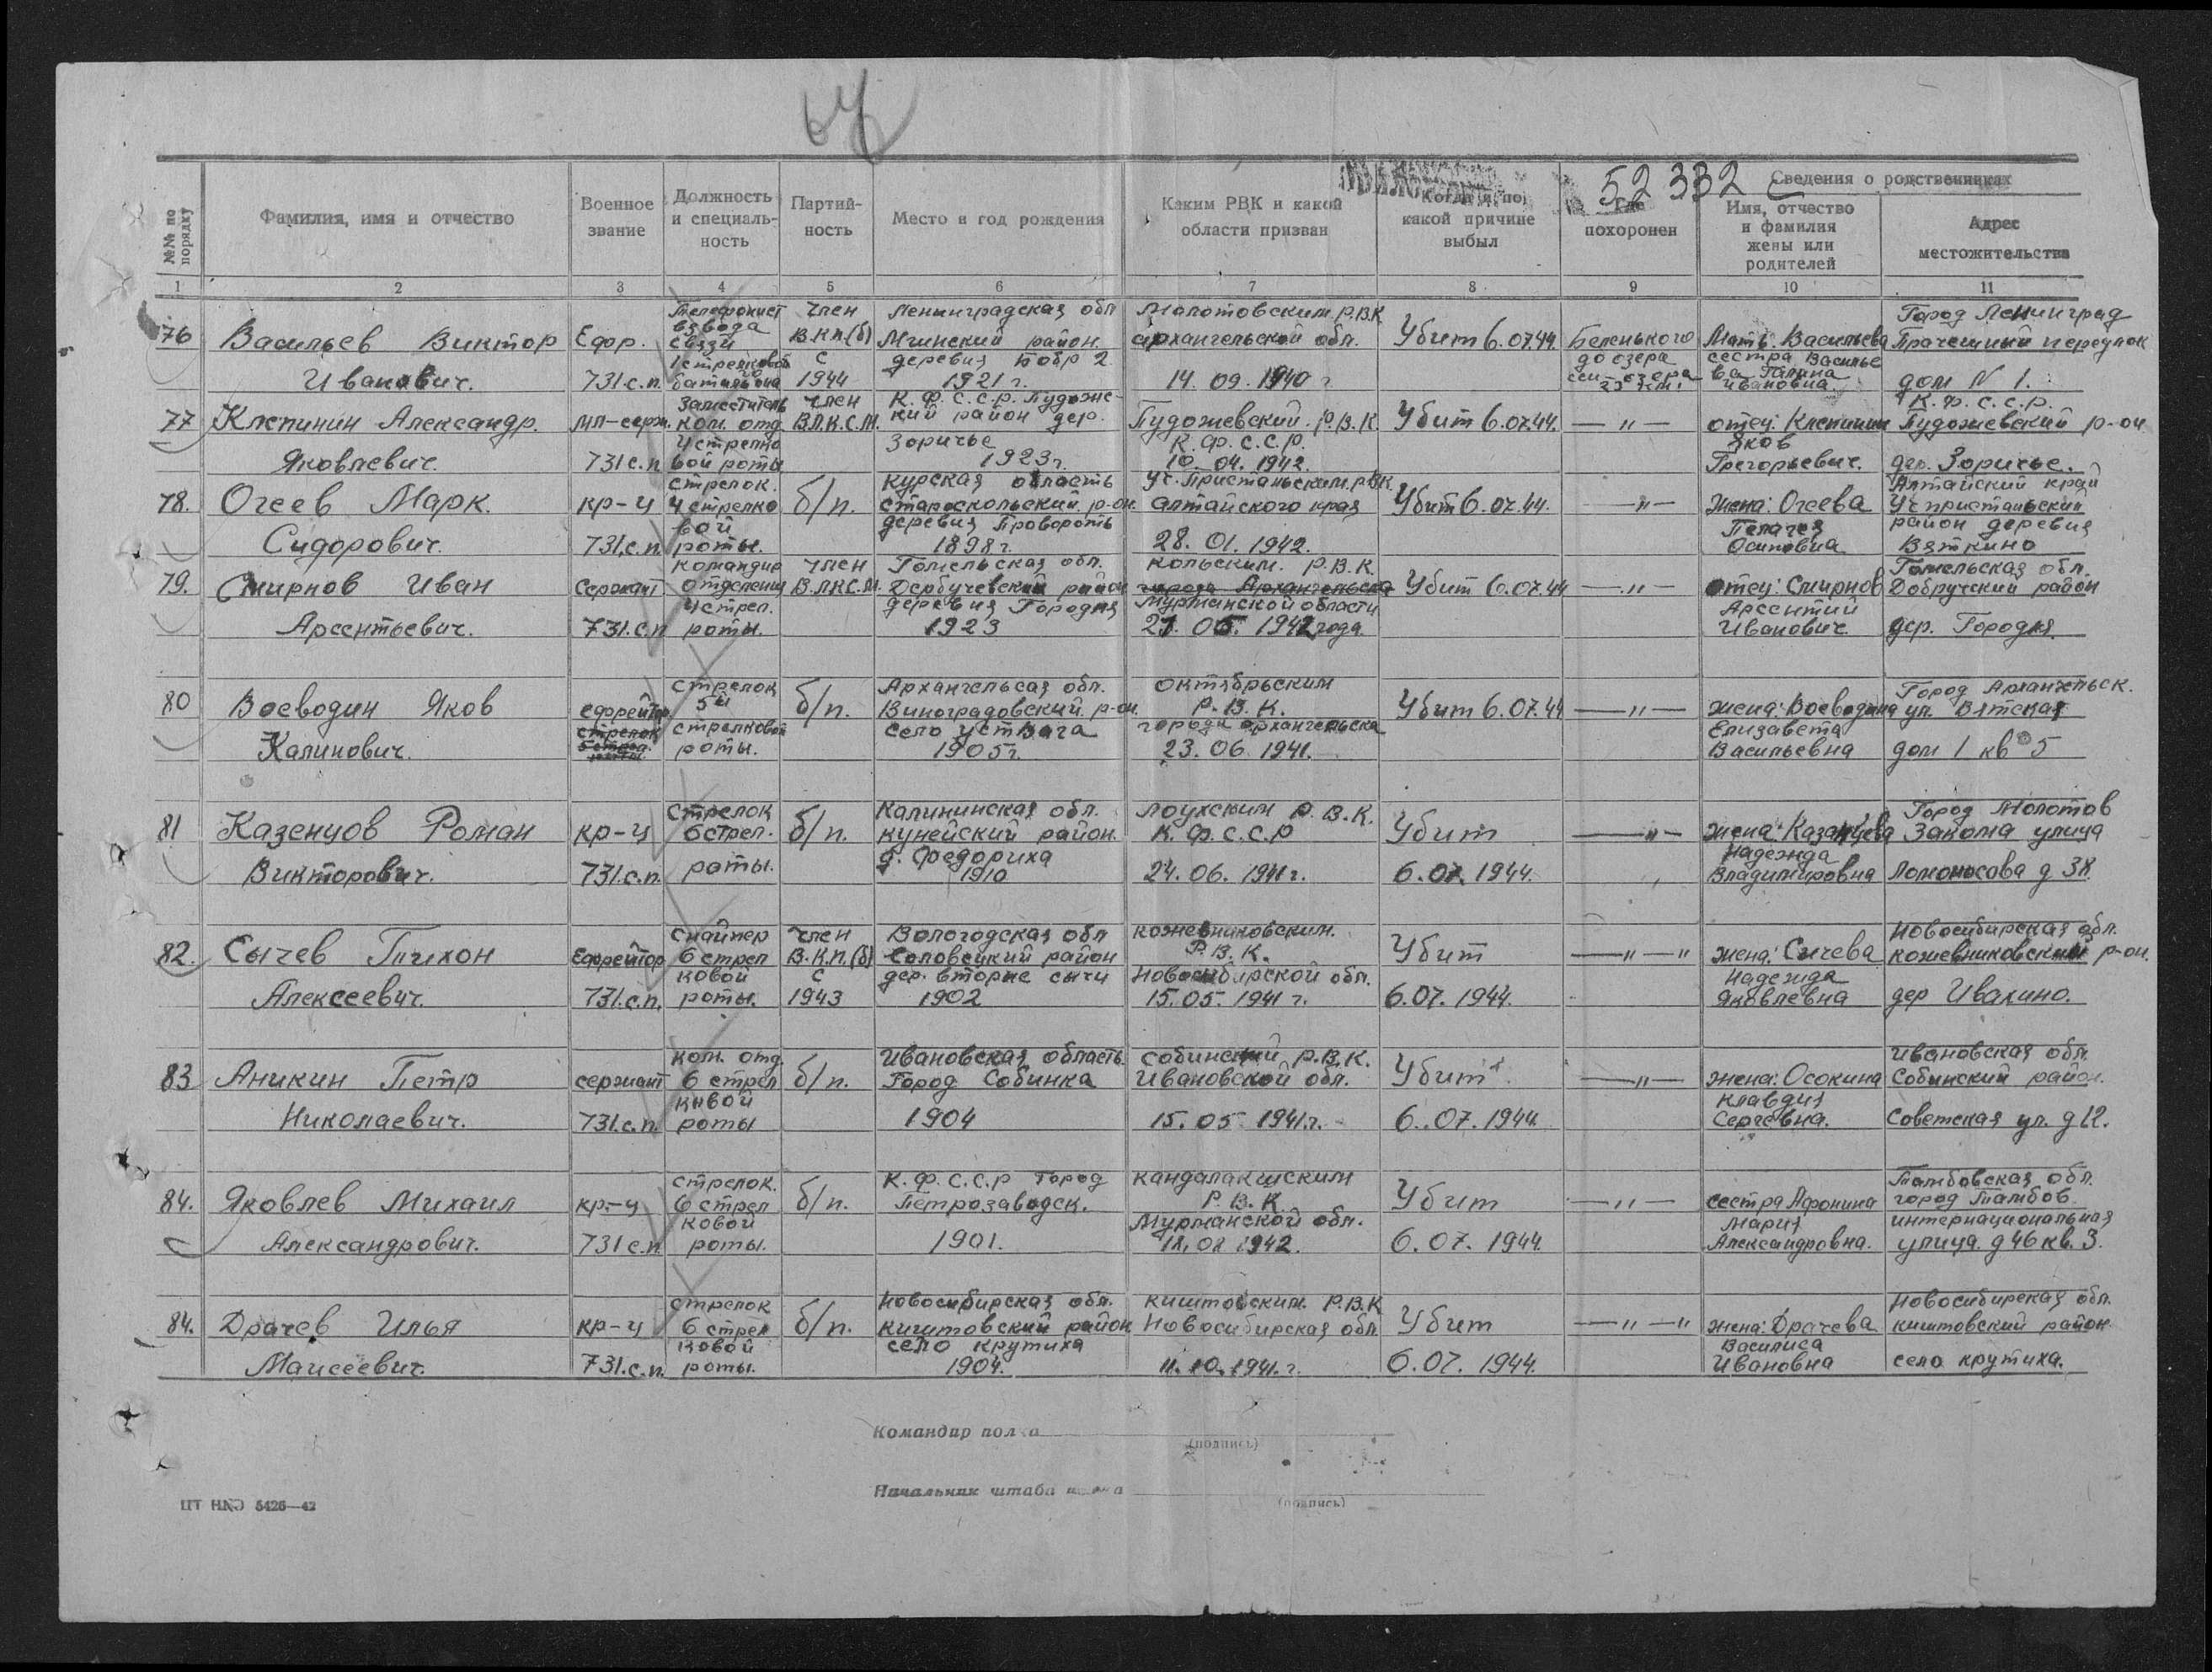 64
52332 с
№№ по порядку
Фамилия, имя и отчество
Военное звание
Должность и специаль-ность
Партий-ность
Место и год рождения
Каким РВК и какой области призван
Когда и по какой причине выбыл
Где похоронен
Сведения о родственниках
Имя, отчество и фамилия жены или родителей
Адрес местожительства
1 2 3 4 5 6 7 8 9 10 11
76 Васильев Виктор Иванович.
Ефр. 731 с.п.
Телефонист взвода связи 1 стрелковой батальона
член В.К.П.(б) с 1944
Ленинградская обл Мгинский район. деревня 1921 г.
Молотовским Р.В.К. Архангельской обл. 14. 09. 1940 г
Убит 6.07.44.
Беленького до озера
Мать: Васильева сестра Василье ва Галина Ивановна.
Город Ленинград Прачешный переулок дом N 1.
77 Клепинин Александр. Яковлевич.
мл-серж. 731 с.п
Заместитель ком. отд 4 стрелко вой роты
член В.Л.К.С.М.
К.Ф.С.С.Р. Пудожс-кий район дер. Заричье 1923 г.
Пудожевский. Р.В.К. К.Ф.С.С.Р. 10. 04. 1942.
Убит 6.07.44.
— " —
отец: Клепинин Яков Григорьевич.
К.Ф.С.С.Р. Пудожевский р-он дер. Заричье.
78. Огеев Марк. Сидорович.
кр-ц 731.с.п.
стрелок. 4 стрелко вой роты.
б/п.
Курская область староскольский р-он. деревня 1898 г.
Ус. Пристаньским. РВК алтайского края 28. 01. 1942.
Убит 6.07.44.
— " —
Жена: Огеева Пелагея Осиповна
Алтайский край Ус пристаньский район деревня Вяткино
79. Смирнов Иван Арсентьевич.
Сержант 731.с.п
командир отделения 4 стрел. роты.
член В.Л.К.С.М.
Гомельская обл. Дербучевский район деревня Городня 1923
Кольским. Р.В.К. города Архангельска Мурманской области 21. 05. 1942 года.
Убит 6.07.44
— " —
отец: Смирнов Арсентий Иванович.
Гомельская обл. Добручский район дер. Городня.
80 Воеводин Яков Калинович.
ефрейтор стрелок 5 стрел. роты
стрелок 5й стрелковой роты.
б/п.
Архангельсая обл. Виноградовский р-он. село устВага 1905 г.
октябрьским Р.В.К. города архангельска 23. 06. 1941.
Убит 6.07.44
— " —
Жена: Воеводина Елизавета Васильевна
Город Архангельск. ул. Вятская дом 1 кв 5
81 Казенцов Роман Викторович.
кр-ц 731.с.п.
Стрелок 6 стрел. роты.
б/п.
Калининская обл. кунейский район. д. Федориха 1910
Лоухским Р.В.К. К.Ф.С.С.Р 24. 06. 1941 г.
Убит 6.07.1944.
— " —
жена: Казанцева Надежда Владимировна
Город Молотов улица Ломоносова д 38.
82. Сычев Тихон Алексеевич.
Ефрейтор 731.с.п.
снайпер 6 стрел ковой роты.
член В.К.П.(б) с 1943
Вологодская обл Соловецкий район дер. вторые сычи 1902
кожевниковским. Р.В.К. Новосибирской обл. 15. 05. 1941 г.
Убит 6.07. 1944.
— " — "
жена: Сычева Надежда Яковлевна
Новосибирская обл. кожевниковский р-он. дер Ивакино.
83 Аникин Петр Николаевич.
сержант 731.с.п.
ком. отд. 6 стрел ковой роты
б/п.
Ивановская область. Город Собинка 1904
Собинский Р.В.К. Ивановской обл. 15. 05 1941 г.
Убит. 6..07. 1944.
— " —
жена: Осокина Клавдия Сергевна.
Ивановская обл. Собинский район. Советская ул. д 12.
84. Яковлев Михаил Александрович.
кр-ц 731 с.п
стрелок. 6 стрел ковой роты.
б/п.
К.Ф.С.С.Р Город Петрозаводск. 1901.
Кандалакшским Р.В.К. Мурманской обл. 1942.
Убит 6. 07. 1944.
— " —
сестра Афонина Мария Александровна.
Тамбовская обл. город Тамбов. интернациональная улица. д 46 кв. 3.
84. Драчев Илья Маисеевич.
кр-ц 731.с.п.
стрелок 6 стрел ковой роты.
б/п.
Новосибирская обл. киштовский район село крутиха 1904.
киштовским. Р.В.К Новосибирская обл. 11. 10. 1941. г.
Убит 6. 07. 1944.
— " — "
жена: Драчева Василиса Ивановна
Новосибирская обл. киштовский район. село крутиха.
Командир полка
(подпись)
Начальник штаба полка
(подпись)
ЦТ НКО 5426—42